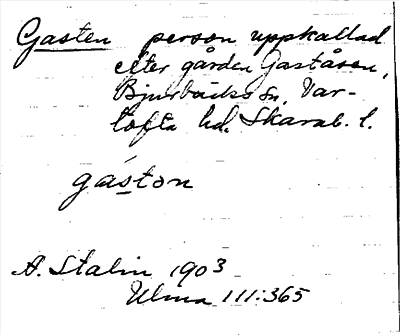 Gasten person uppkallad
efter gården Gaståsen,
Bjurbäcks sn, Var-
tofta hd. Skarab. l.
gáston
A. Stalin 1903
Ulma 111:365